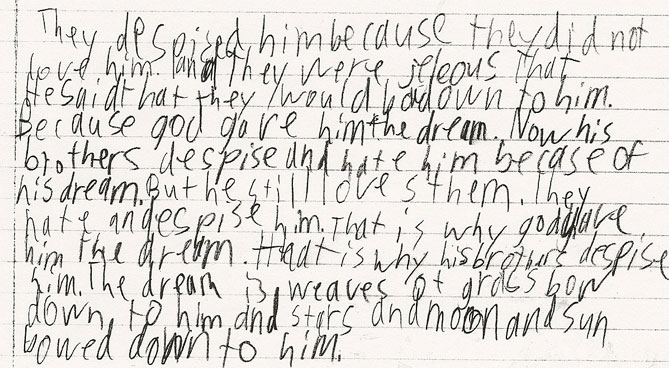 They despised him because they did not
love him. And They were jeleous That
He said that they would bow down to him.
Because god gave him the dream. Now his
brothers despise and hate him becase of
his dream. But he still loves them. They
hate an despise him. That is why god gave
him the dream. that is why his brothers despise
him. The dream is weaves of grass bow
down to him and stars and moon and sun
bowed down to him.